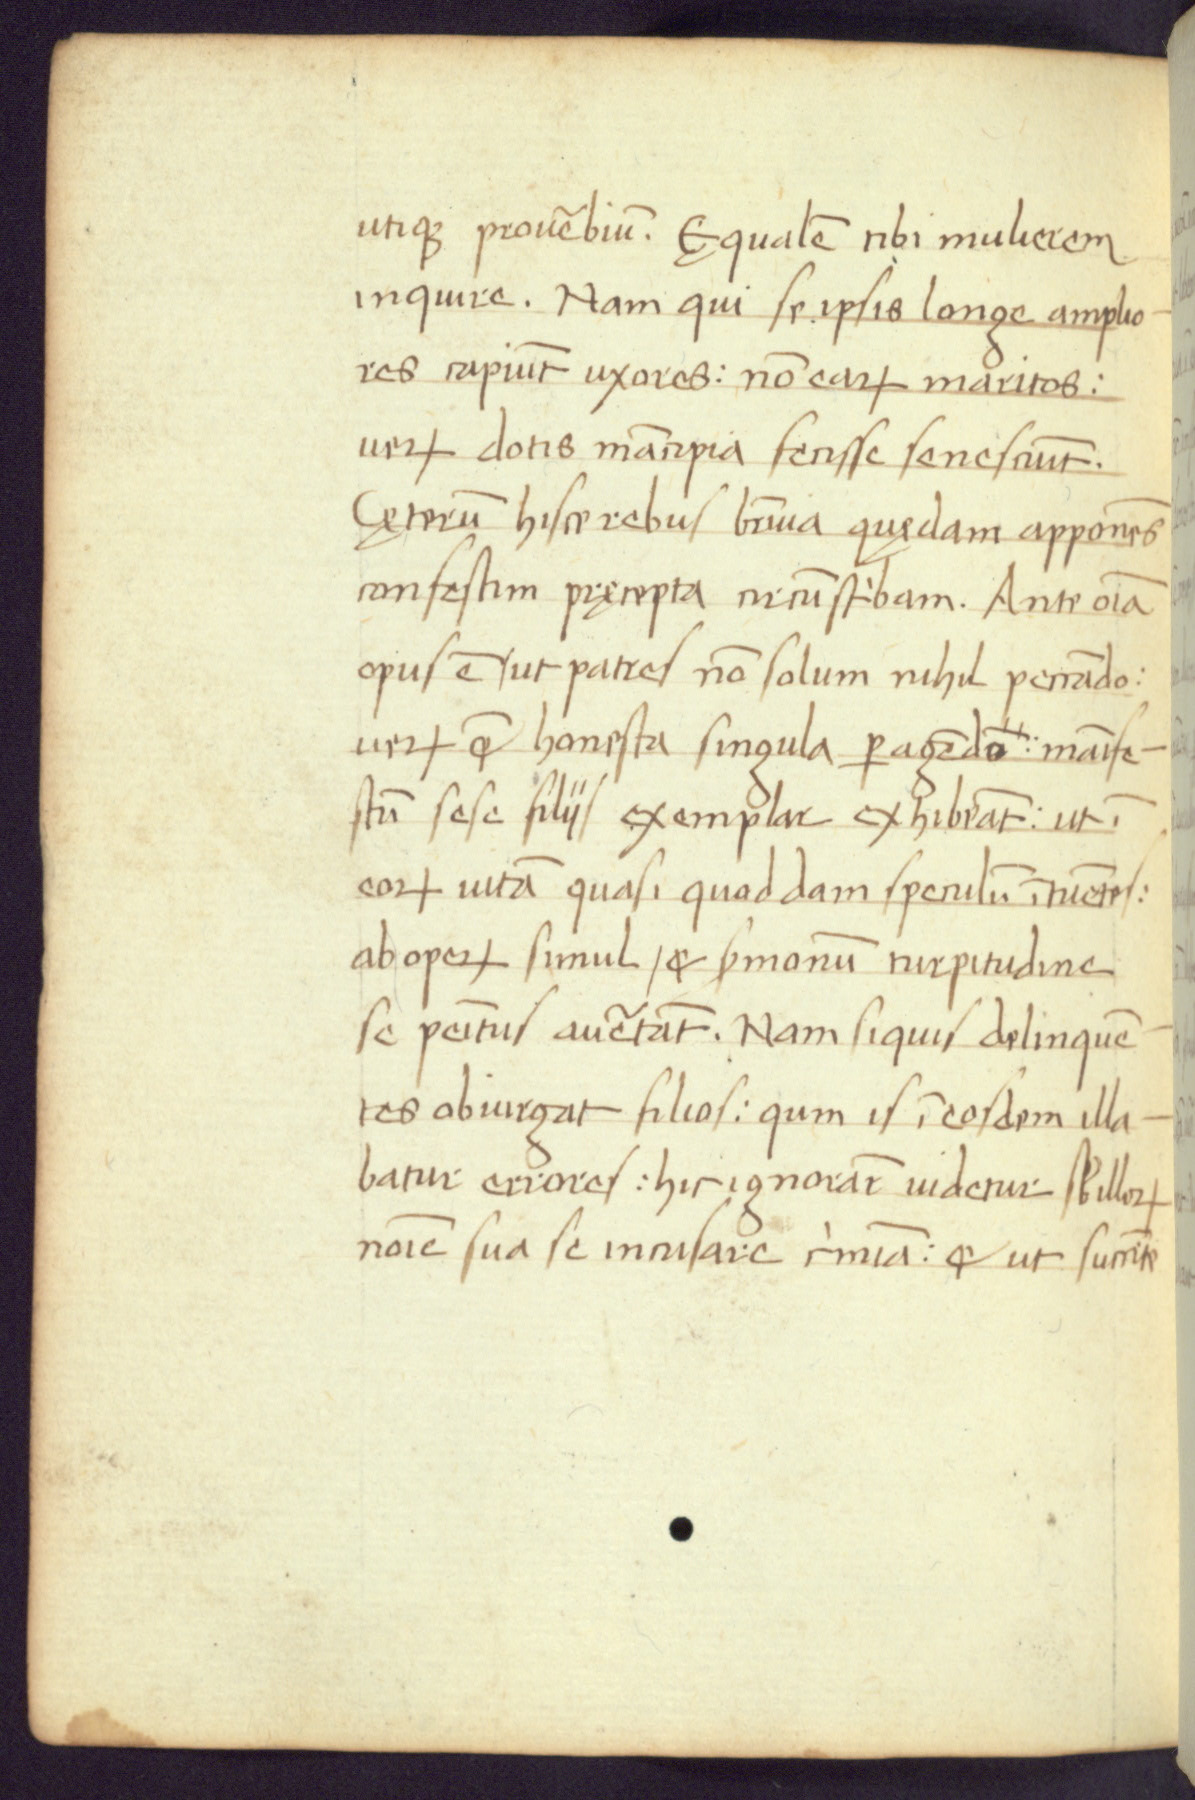 utiqꝫ prouẽbiũ. Ęqualẽ tibi mulierem
inquire. Nam qui se ipsis longe amplio-
res capiũt uxores: nõ eaꝝ maritos:
ueꝝ dotis mãcipia fecisse se nesciũt.
Cęterũ hisce rebus br̃uia quędam apponẽs
confestim pręcepta circũscͥbam. Ante oĩa
opus ẽ / ut patres nõ solum nihil peccãdo:
ueꝝ & honesta singula ꝑagẽdo: mãife-
stũ sese filijs exemplar exhibeãt: ut ĩ
eoꝝ uitã quasi quoddam speculũ ĩtuẽtes:
ab opeꝝ simul / & ẜmonũ turpitudine
se peĩtus auẽtãt. Nam siquis delinquẽ-
tes obiurgat filios: qum is ĩ eosdem illa-
batur errores: hic ignorar̃ uidetur sƀ illoꝝ
noĩe sua se incusare cͥmĩa: & ut succĩte